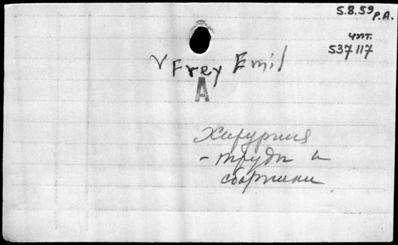 5.8.59 P.A.
чт.
537117
V Frey Emil
A
Хирургия
- труды и
сборники